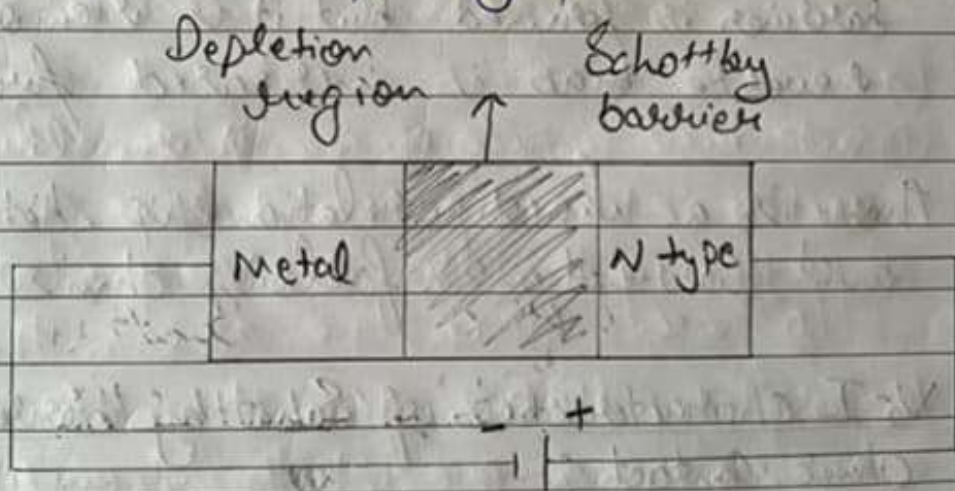 Depletion
region
Schottky
barrier
Metal
N type
- +